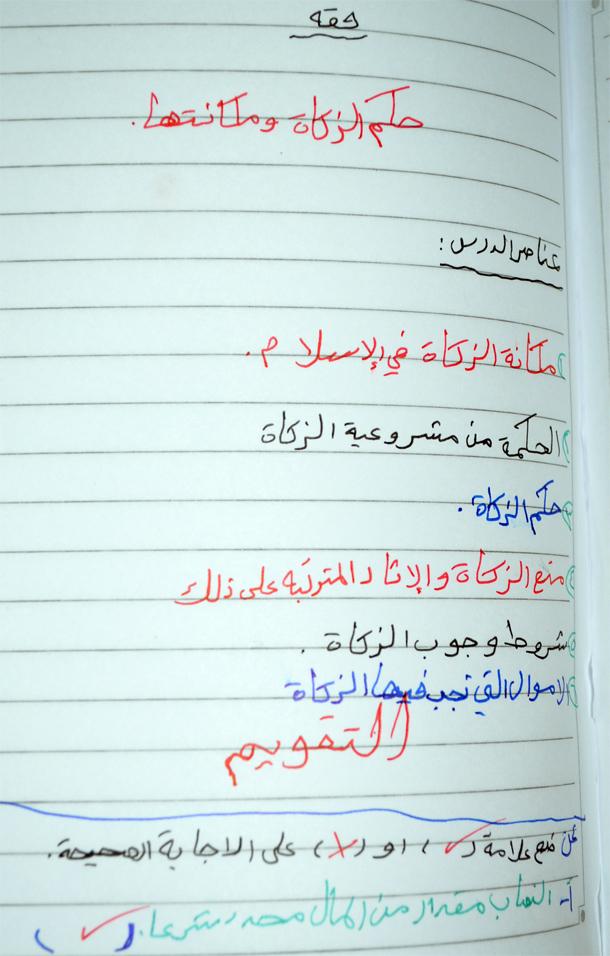 فقه
حكم الزكاة ومكانتها.
عناصر الدرس:
مكانة الزكاة في الإسلام.
الحكمة من مشروعية الزكاة
حكم الزكاة.
منع الزكاة والاثار المترتبه على ذلك
شروط وجوب الزكاة.
الاموال التي تجب فيها الزكاة
التقويم
ضع علامة (✓) او (X) على الاجابة الصحيحة.
أ- النصاب مقدار من المال محدد شرعا. (✓)